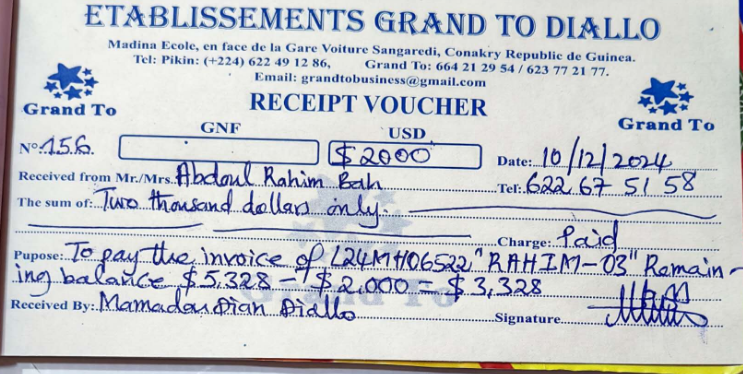 ETABLISSEMENTS GRAND TO DIALLO
Madina Ecole, en face de la Gare Voiture Sangaredi, Conakry Republic de Guinea.
Tel: Pikin: (+224) 622 49 12 86, Grand To: 664 21 29 54 / 623 77 21 77.
Email: grandtobusiness@gmail.com
Grand To RECEIPT VOUCHER Grand To
GNF USD
N°:156. $ 2000 Date: 10/12/2024
Received from Mr./Mrs. Abdoul Rahim Bah Tel: 622 67 51 58
The sum of: Two thousand dollars only.
Charge: Paid
Pupose: To pay the invoice of L24MH06522 "RAHIM-03" Remain-
ing balance $5,328 - $2,000 = $3,328
Grand To
Received By: Mamadou Dian Diallo Signature